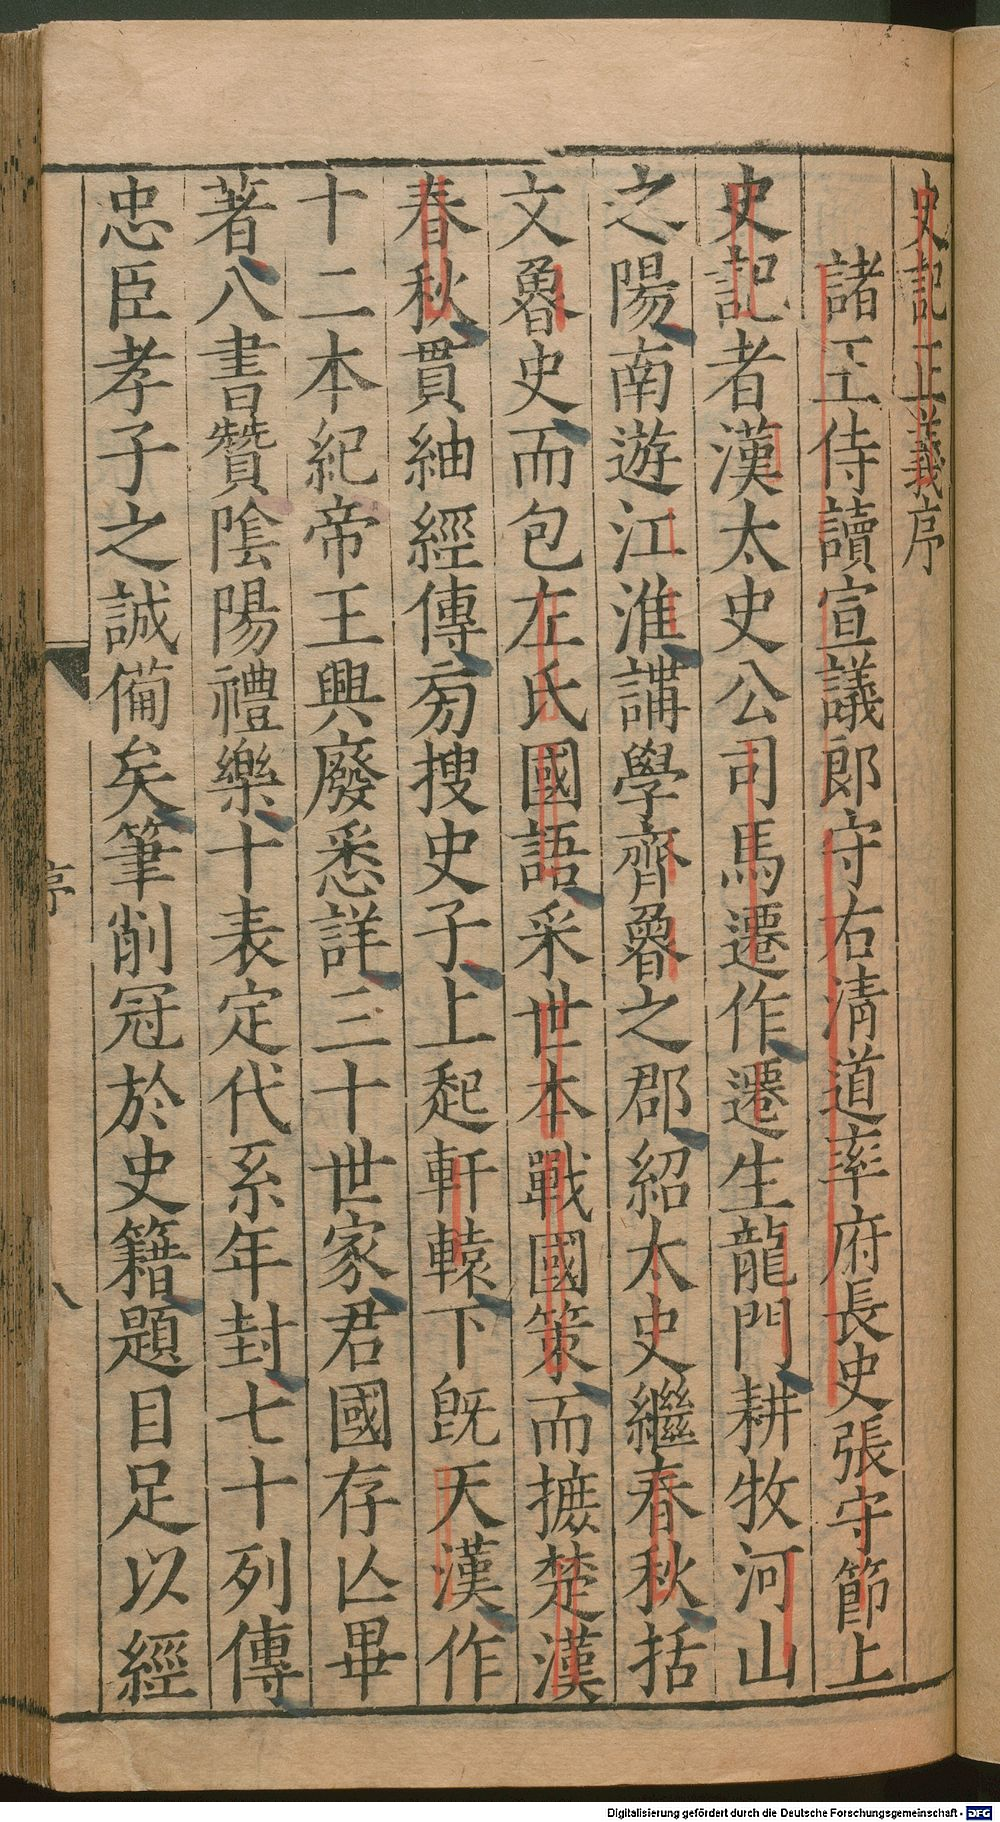 史記正義序
諸王侍讀宣議郎守右清道率府長史張守節上
史記者漢太史公司馬遷作遷生龍門耕牧河山
之陽南遊江淮講學齊魯之郡紹太史繼春秋括
文魯史而包左氏國語采世本戰國策而摭楚漢
春秋貫紬經傳㫄搜史子上起軒轅下旣天漢作
十二本紀帝王興廢悉詳三十世家君國存亾畢
著八書贊陰陽禮樂十表定代系年封七十列傳
忠臣孝子之誠備矣筆削冠於史籍題目足以經
序
Digitalisierung gefördert durch die Deutsche Forschungsgemeinschaft - DFG